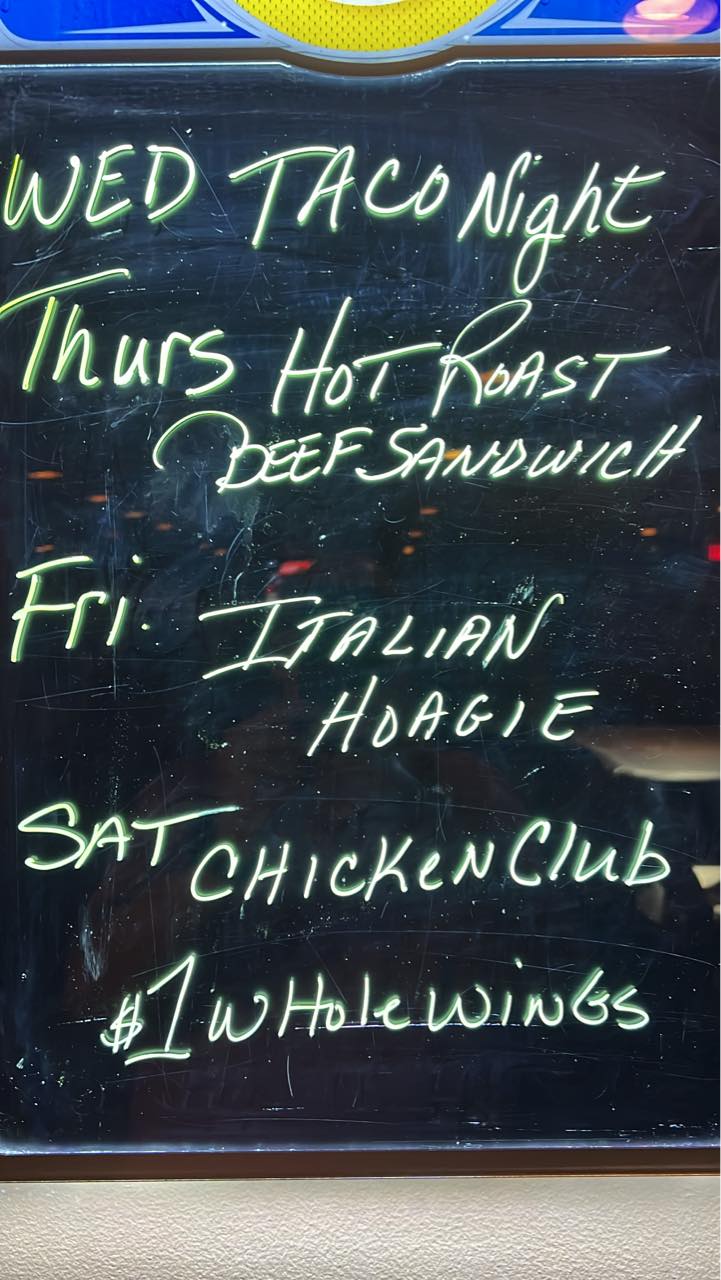 WED TACO Night
Thurs HOT ROAST
BEEF SANDWICH
Fri. ITALIAN
HOAGIE
SAT CHICKEN Club
$1 WHole WINGS